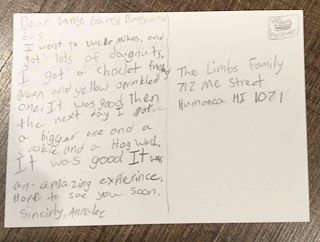 Dear Larry, Garry, Barry and
I went to Uncle Mikes, and
got lots of dougnuts,
I got a choclet frosted
green and yellow sprinkled
one. It was good then
the next day I got a
a bigger one and a
cookie and a Hog wash.
It was good It was
an amazing expirince.
Hope to see you soon.
Sincirly, Annalee
The Limbs Family
712 Me Street
Humonoca HI 1071